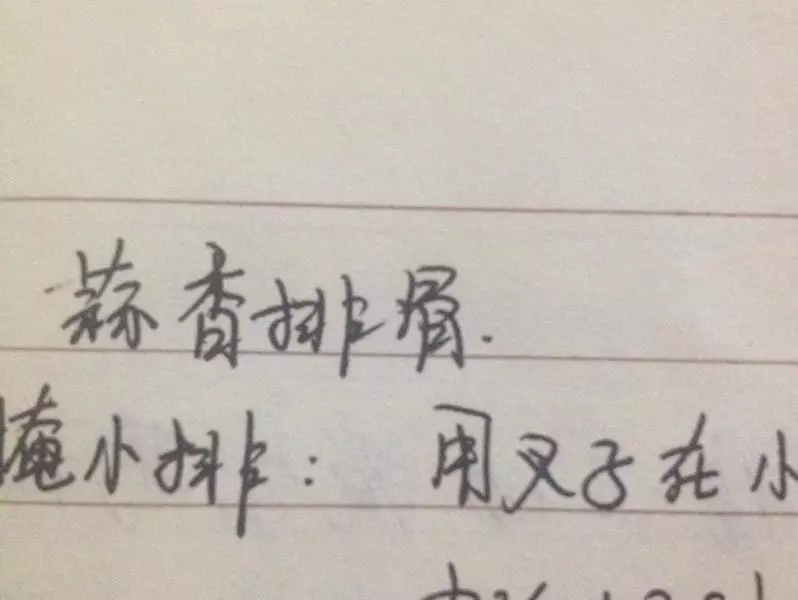 蒜香排骨.
腌小排: 用叉子在小